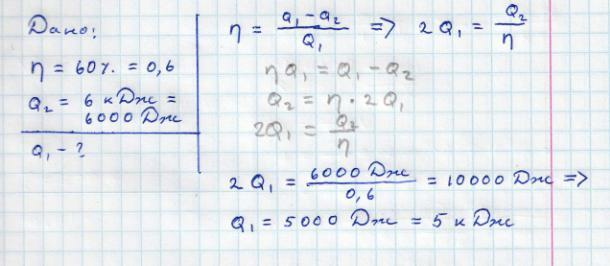 Дано:
η = 60 % = 0,6
Q₂ = 6 кДж =
6000 Дж
Q₁ - ?
η = (Q₁ - Q₂) / Q₁ => 2 Q₁ = Q₂ / η
ηQ₁ = Q₁ - Q₂
Q₂ = η · 2 Q₁
2Q₁ = Q₂ / η
2 Q₁ = 6000 Дж / 0,6 = 10000 Дж =>
Q₁ = 5000 Дж = 5 кДж